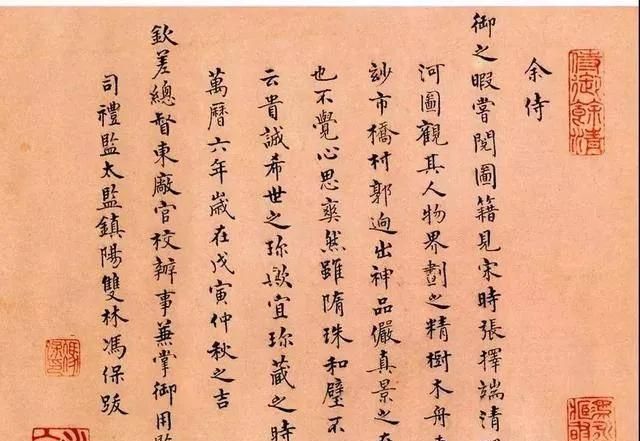 侍御餘清
余侍
御之暇嘗閱圖籍見宋時張擇端清
河圖觀其人物界劃之精樹木舟
玅市橋村郭迥出神品儼真景之
也不覺心思爽然雖隋珠和璧不
云貴誠希世之珎歟宜珎藏之時
萬曆六年歲在戊寅仲秋之吉
欽差總督東廠官校辦事兼掌御用
司禮監太監鎮陽雙林馮保跋